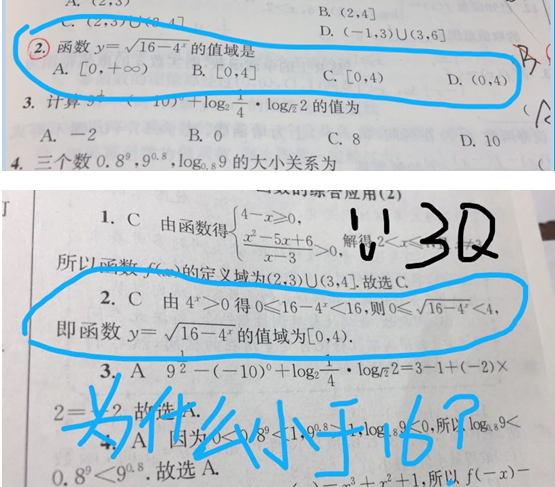 B. (2,4]
D. (-1,3)∪(3,6]
2. 函数 y=√(16-4ˣ) 的值域是
A. [0,+∞) B. [0,4] C. [0,4) D. (0,4)
3. 计算 (-10)⁰+log₂ 1/4 · log√2 2 的值为
A. -2 B. 0 C. 8 D. 10
4. 三个数 0.8⁹, 9^0.8, log₀.₈9 的大小关系为
的综合应用(2)
1. C 由函数得 { 4-x≥0, (x²-5x+6)/(x-3)>0, 解得 2<x≤
3Q
所以函数 f(x) 的定义域为(2,3)∪(3,4]. 故选 C.
2. C 由 4ˣ>0 得 0≤16-4ˣ<16, 则 0≤√(16-4ˣ)<4,
即函数 y=√(16-4ˣ) 的值域为[0,4).
3. A 9^(1/2)-(-10)⁰+log₂ 1/4 · log√2 2=3-1+(-2)×
2=-2. 故选 A.
为什么小于16?
4. A 因为 0<0.8⁹<1, 9^0.8>1, log₀.₈9<0, 所以 log₀.₈9<
0.8⁹<9^0.8. 故选 A.
x³+x²+1, 所以 f(-x)-